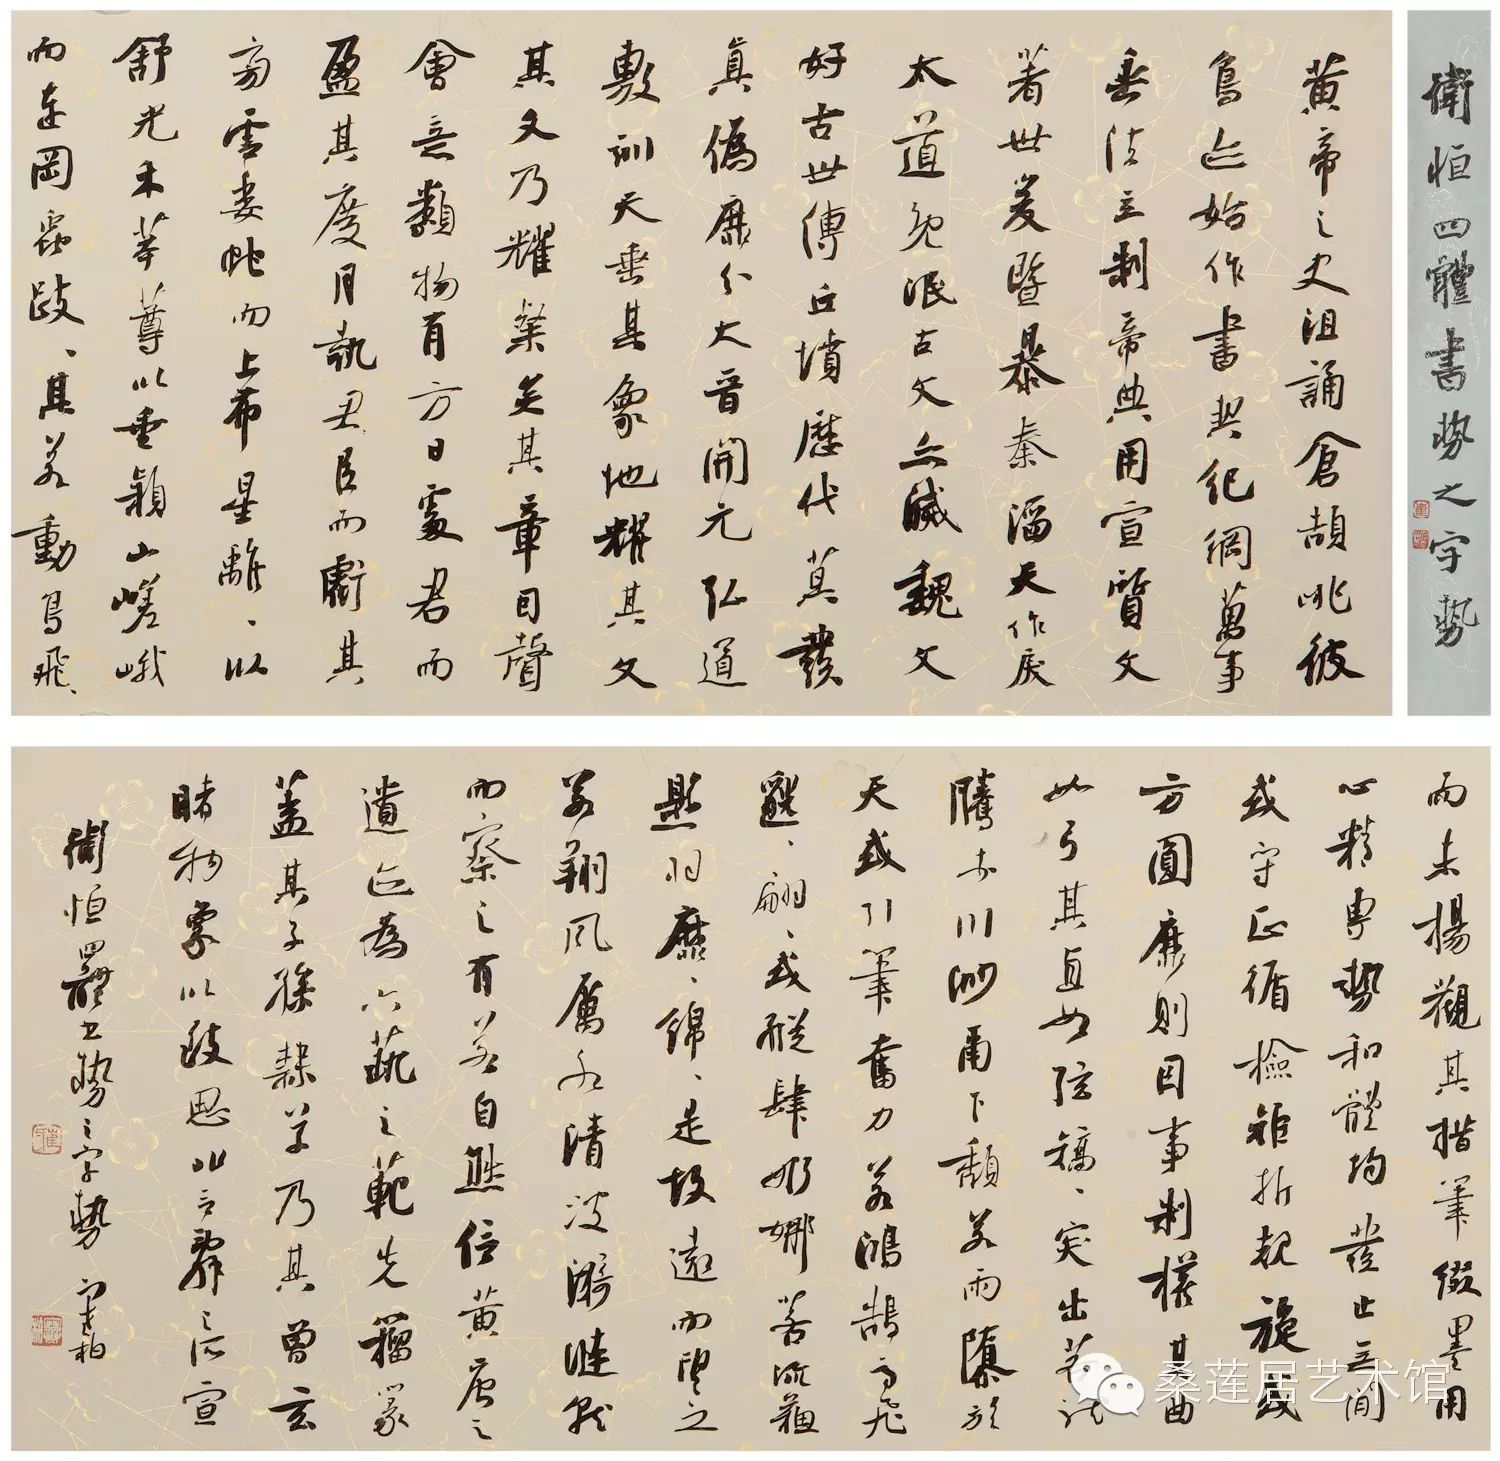 衛恒四體書勢之字勢
黃帝之史沮誦倉頡眺彼
鳥跡始作書契紀綱萬事
垂法立制帝典用宣質文
著世爰暨暴秦滔天作戾
大道既泯古文亦滅魏文
好古世傳丘墳歷代莫發
真偽靡分大晉開元弘道
敷訓天垂其象地耀其文
其文乃耀粲矣其章因聲
會意類物有方日處君而
盈其度月執臣而虧其
旁雲委蛇而上布星離離以
舒光禾苯䔿以垂穎山嵯峨
而連岡蟲跂跂其若動鳥飛
而未揚觀其措筆綴墨用
心精專勢和體均發止無間
或守正循檢矩折規旋或
方圓靡則因事制權其曲
如弓其直如弦矯然突出若龍
騰于川渺爾下頹若雨墜於
天或引筆奮力若鴻鵠高飛
邈邈翩翩或縱肆婀娜若流蘇
懸羽靡靡綿綿是故遠而望之
若翔風厲水清波漪漣就
而察之有若自然信黃唐之
遺跡為六藝之範先籀篆
蓋其子孫隸草乃其曾玄
睹物象以致思非言辭之所宣
衛恒四體書勢之字勢
桑莲居艺术馆